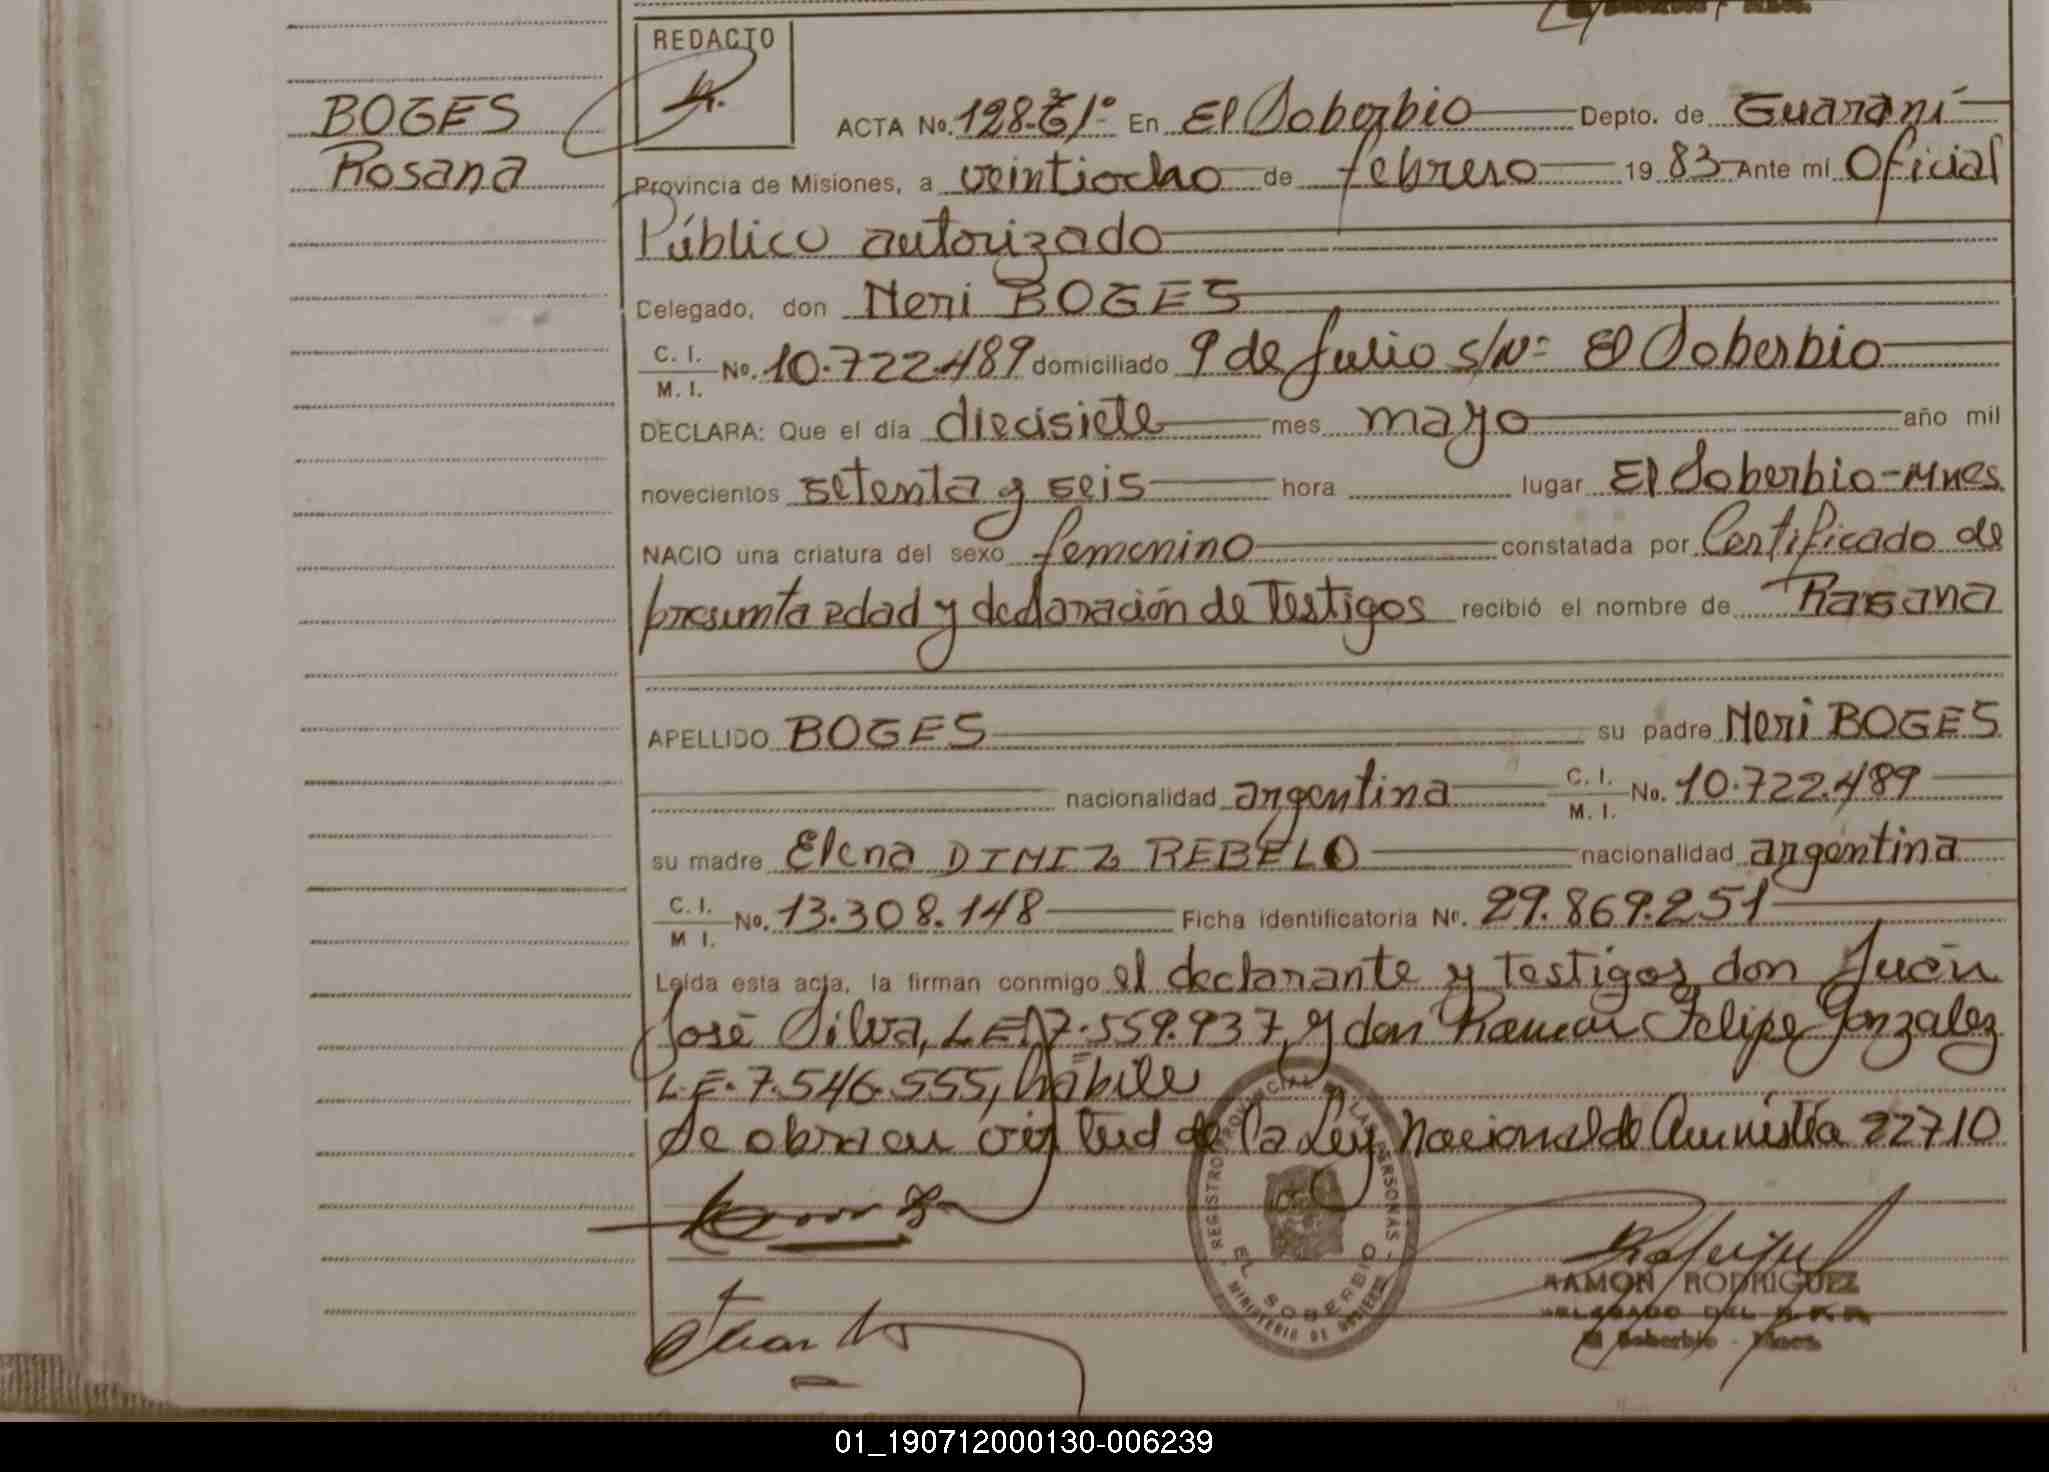 REDACTO
BOGES
Rosana
ACTA No. 128-T/1º En El Soberbio Depto. de Guaraní
Provincia de Misiones, a veintiocho de febrero 19 83 Ante mí Oficial
Público autorizado
Celegado, don Neri BOGES
C. I.
M. I. No. 10.722.489 domiciliado 9 de Julio s/Nº El Soberbio
DECLARA: Que el día diecisiete mes mayo año mil
novecientos setenta y seis hora lugar El Soberbio-Mnes
NACIO una criatura del sexo femenino constatada por Certificado de
presunta edad y declaración de Testigos recibió el nombre de Rosana
APELLIDO BOGES su padre Neri BOGES
nacionalidad argentina C. I.
M. I. No. 10.722.489
su madre Elena DINIZ REBELO nacionalidad argentina
C. I.
M I. No. 13.308.148 Ficha identificatoria Nº. 29.869.251
Leída esta acta, la firman conmigo el declarante y testigos, don Juan
José Silva, L.E. 7.559.937, y don Ramon Felipe Gonzalez
L.E. 7.546.555, hábile
Se obra en virtud de la Ley Nacional de Amnistía 22710
REGISTRO PROVINCIAL DE LAS PERSONAS
EL SOBERBIO
MINISTERIO DE GOBIERNO
RAMON RODRIGUEZ
DELEGADO DEL R.P.P.
El Soberbio - Mnes.
01_190712000130-006239